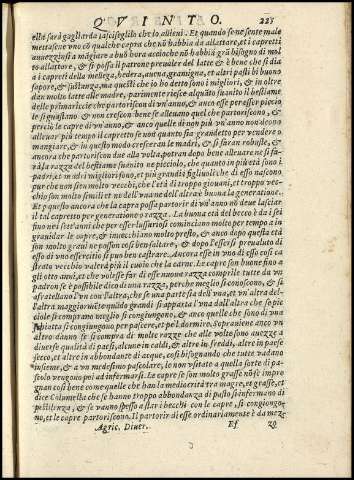 QVINTO. 225
ella sarà gagliarda lasciseglilo che lo allieui. Et quando se ne sente male
mettasene vno cō qualche capra che nō habbia da allattare, et i capretti
auuezzinsi a māgiare a buō hora acciochè nō habbiā grā bisogno di mol
to allattare, & si possa il patrone preualer del latte & è bene che si dia
a i capreti della mellega, hedera, auena, gramigna, et altri pasti di buono
sapore, & sustanza, ma questi che io ho detto sono i migliori, & in oltre
dan molto latte alle madre, parimente riesce alquāto suanito il bestiame
delle primariccie che partoriscon di vn'anno, & anco esse per esser picciole
si guastano & non crescon bene se alleuano quel che partoriscono, &
perciò le capre di vn'anno, & anco quelle di non piu vn'anno nō deono
alleuar piu tempo il capretto se non quanto sia grandetto per vendere o
mangiare, & in questo modo cresceran le madri, & si faran robuste, &
ancora che partoriscan due alla volta, potran dopo bene alleuare ne si fa-
rà la razza del bestiame suanito ne picciolo, che quanto in più età sono i
padri, et le madri migliori sono, et piu grandi i figliuoli che di esso nascono
pur che non sien molto vecchi, che l'età di troppo giouani, et troppo vec-
chi son molto simili et nell'vna ne dell'altra è buona la generatione.
Et per questo ancora che la capra possa partorir di vn'anno nō deue lasciar
il tal capretto per generatione o razza. La buona età del becco è da i sei
fino ne i sett'anni che per esser lussuriosi cominciano molto per tempo a in
grauidar le capre, & inuecchiano molto presto, & anco dopo questa età
son molto graui ne posson così ben saltare, & dopo l'essersi preualuto di
esso di vno essercitio si puo ben castrare. Ancora esse in vno di essi così ca
strato vecchio valerà piu il cuoio che la carne. Le capre son buone fino a
gli otto anni, et che volesse far di esse nuoua razza comprile tutte da vn
padron se è possibile dico di una razza, perche meglio si conoscono, & si
affratellano l'vn con l'altra, che se una parte sia dell'vna, et vn'altra del-
l'altra maggiormente quādo grandi si apparta l'vna dall'altra che se pic
ciole si comprano meglio si congiungono, & anco quelle che sono di vna
fatta si congiungono per pascere, et pel dormire. Sopraniene anco vn
altro danno se si compra di molte razze che alle volte sono auezze a
diuerse qualità di pasti, alcune in caldi, & altre in freddi, altre in paese
secco, et altre in abbondante di acque, così bisognando che tutte vadano
insieme, & a vn medesimo pascolare, le non vsitate a quella sorte di pa-
scolo vengono poi ad infermarsi. Le capre se son molto grasse nō s'impre
gnan così bene come quelle che han la mediocrità tra magre, et grasse, et
dice Columella che se hanno troppa abbondanza di pasto si infermano di
pestilenza, & se vanno spesso a star i becchi con le capre, si congiongo-
no, et le capre partoriscono. Il partorir di esse ordinariamente è da mezz
Agric. Diuer. Ff zo